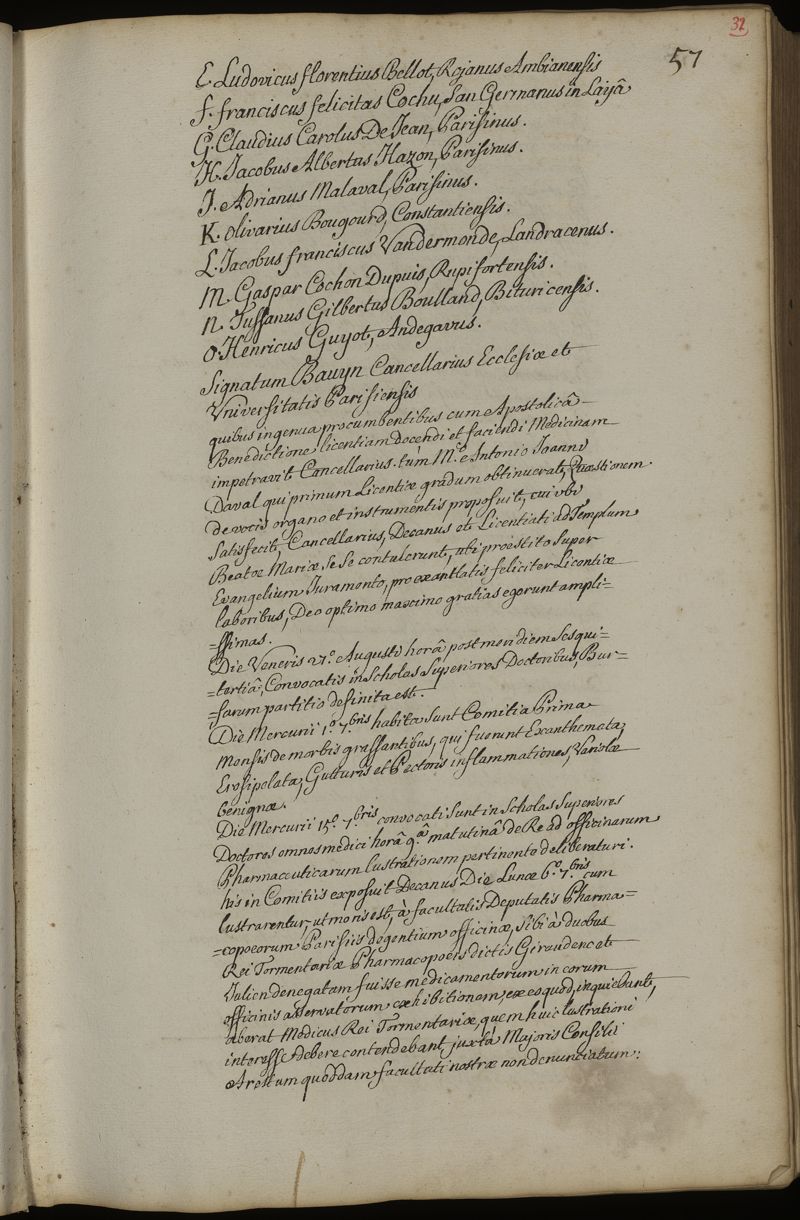 32
57
E. Ludovicus florentius Bellot, Rojanus Ambianensis
F. franciscus felicitas Cochu, San Germanus in Laijâ
G. Claudius Carolus De Jean, Parisinus.
H. Jacobus Albertus Hazon, Parisinus.
J. Adrianus Malaval, Parisinus.
K. olivarius Bougourd, Constantiensis.
L. Jacobus franciscus Vandermonde, Landracenus.
M. Gaspar Cochon Dupuis, Rupifortensis.
N. Tussanus Gilbertus Boulland, Bituricensis.
O. Henricus Guyot, Andegavus.
Signatum Bauyn Cancellarius Ecclesiæ et
Universitatis Parisiensis
quibus ingenua procumbentibus cum Apostolicâ
Benedictione licentiam Docendi et faciendi Medicinam
impetravit Cancellarius. tùm M.e Antonio Joanne
Daval qui primum Licentiæ gradum obtinuerat, Quæstionem
de vocis organo et instrumentis proposuit, cui ubi
Satisfecit, Cancellarius, Decanus et Licentiati ad Templum
Beatæ Mariæ se se contulerunt, ubi præstito super
Evangelium Juramento, pro exantlatis feliciter Licentiæ
laboribus, Deo optimo maximo gratias egerunt ampli=
=ssimas.
Die Veneris 27.º Augusti horâ post meridiem Sesqui=
=tertiâ, Convocatis in Scholas Superiores Doctoribus, Bur=
=sarum partitio definita est.
Die Mercurii 1.º 7.bris habita sunt Comitia Prima
Mensis de morbis grassantibus, qui fuerunt Exanthemata,
Erysipelata, Gutturis et Pectoris inflammationes, Variolæ
benignæ.
Die Mercurii 15.º 7.bris convocati sunt in Scholas Superiores
Doctores omnes medici horâ 9.â matutinâ de Re ad officinarum
Pharmaceuticarum lustrationem pertinente deliberaturi.
his in Comitiis exposuit Decanus Die Lunæ 6.º 7.bris cum
lustrarentur, ut moris est, à facultatis Deputatis Pharma=
=copoeorum Parisiis degentium officinæ, sibi à duobus
Rei Tormentariæ Pharmacopoeis dictis Giraudenc et
Julien denegatam fuisse medicamentorum in eorum
officinis asservatorum exhibitionem, ex eo quod, inquiebant,
aberat Medicus Rei Tormentariæ, quem huic lustrationi
interesse debere contendebant juxtà Majoris Consilii
Arestum quoddam facultati nostræ non denunciatum: